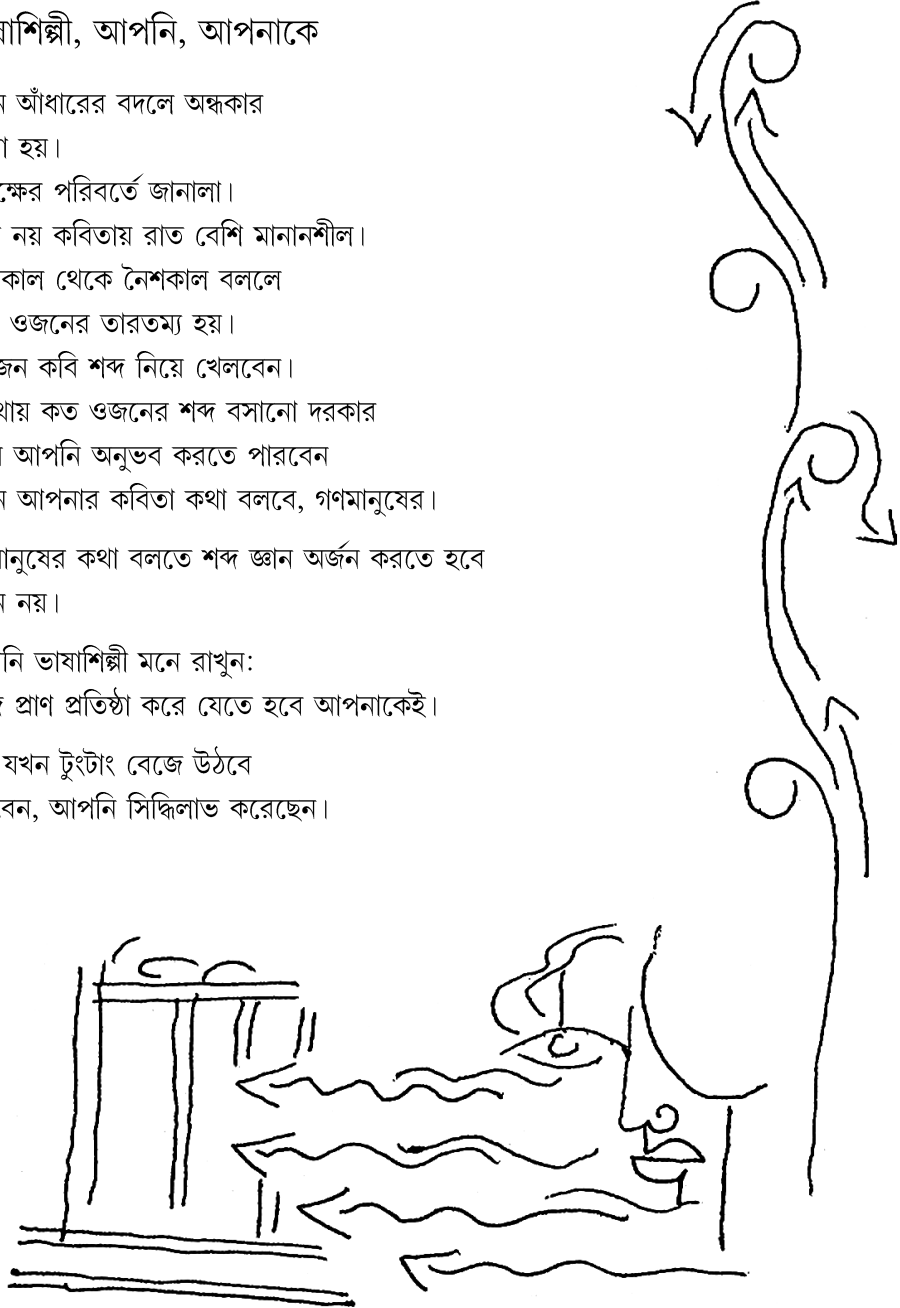 ষাশিল্পী, আপনি, আপনাকে
ন আঁধারের বদলে অন্ধকার
া হয়।
ক্ষের পরিবর্তে জানালা।
নয় কবিতায় রাত বেশি মানানশীল।
কাল থেকে নৈশকাল বললে
ওজনের তারতম্য হয়।
জন কবি শব্দ নিয়ে খেলবেন।
থায় কত ওজনের শব্দ বসানো দরকার
আপনি অনুভব করতে পারবেন
ন আপনার কবিতা কথা বলবে, গণমানুষের।
মানুষের কথা বলতে শব্দ জ্ঞান অর্জন করতে হবে
ন নয়।
নি ভাষাশিল্পী মনে রাখুন:
প্রাণ প্রতিষ্ঠা করে যেতে হবে আপনাকেই।
যখন টুংটাং বেজে উঠবে
বেন, আপনি সিদ্ধিলাভ করেছেন।